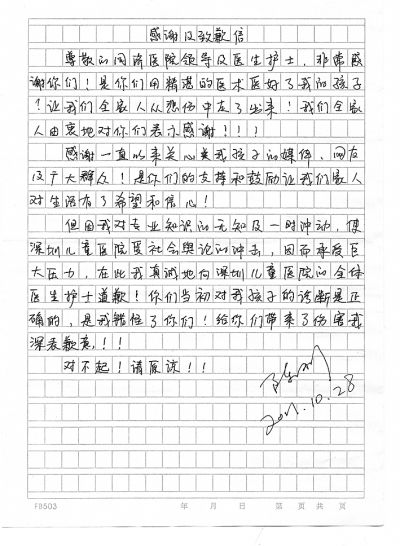 感谢及致歉信
尊敬的同济医院领导及医生护士，非常感
谢你们！是你们用精湛的医术医好了我的孩子
！让我们全家人从悲伤中走了出来！我们全家
人由衷地对你们表示感谢！！！
感谢一直以来关心关我孩子的媒体、网友
及广大群众！是你们的支撑和鼓励让我们家人
对生活有了希望和信心！
但因我对专业知识的无知及一时冲动，使
深圳儿童医院受社会舆论的冲击，因而承受巨
大压力，在此我真诚地向深圳儿童医院的全体
医生护士道歉！你们当初对我孩子的诊断是正
确的，是我错怪了你们！给你们带来了伤害我
深表歉意！！！
对不起！请原谅！！！
2011.10.28
FB503 年 月 日 第 页 共 页